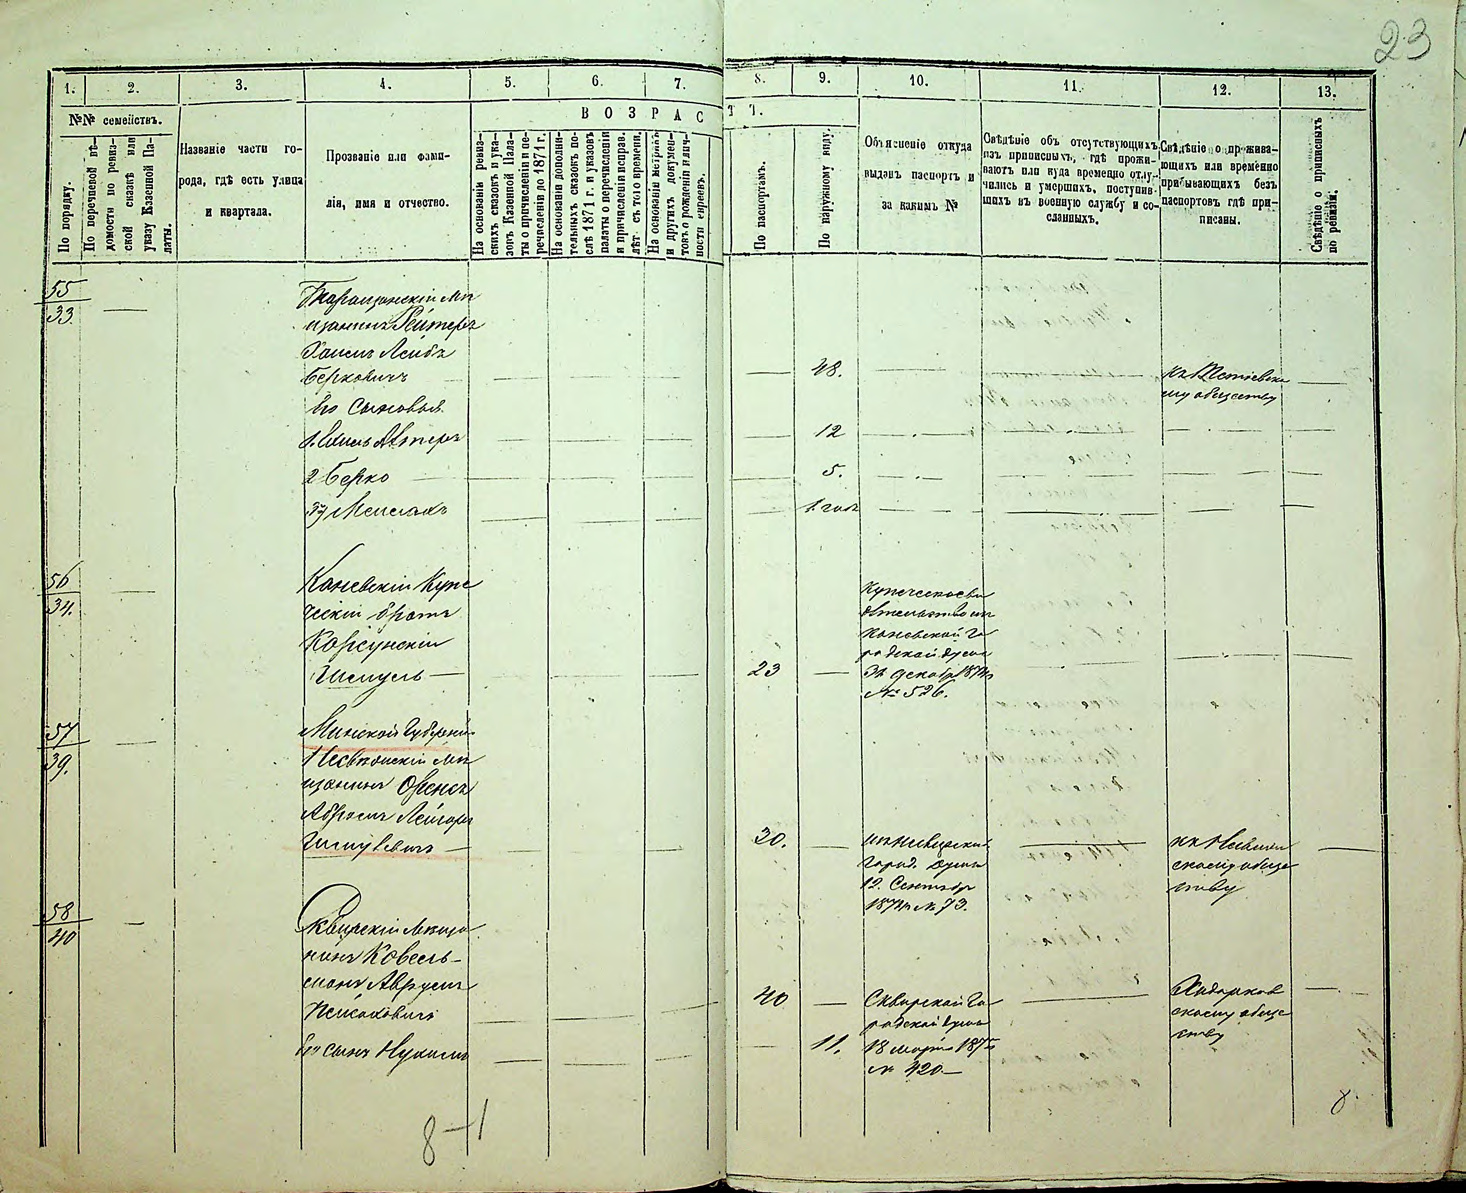 23
1. 2. 3. 4. 5. 6. 7. 8. 9. 10. 11. 12. 13.
№№ семействъ.
По порядку.
По перечневой вѣ-
домости по ревиз-
ской сказкѣ или
указу Казенной Па-
латы.
Названіе части го-
рода, гдѣ есть улица
и квартала.
Прозваніе или фами-
лія, имя и отчество.
ВОЗРАСТЪ.
На основаніи ревиз-
скихъ сказокъ и ука-
зовъ Казенной Пала-
ты о причисленіи и пе-
речисленіи до 1871 г.
На основаніи дополни-
тельныхъ сказокъ по-
слѣ 1871 г. и указовъ
палаты о перечисленіи
и причисленіи исправ.
лѣт. съ того времени.
На основаніи метрикъ
и другихъ докумен-
товъ о рожденіи и лич-
ности евреевъ.
По паспортамъ.
По наружному виду.
Объясненіе откуда
выданъ паспортъ и
за какимъ №
Свѣдѣніе объ отсутствующихъ
изъ приписныхъ, гдѣ прожи-
ваютъ или куда временно отлу-
чились и умершихъ, поступив-
шихъ въ военную службу и со-
сланныхъ.
Свѣдѣніе о прожива-
ющихъ или временно
прибывающихъ безъ
паспортовъ гдѣ при-
писаны.
Свѣдѣніе о приписныхъ
по ревизіи.
55
33
Таращанскій мѣ
щанинъ Рейтеръ
Хаимъ Лейбъ
Берковичъ — 48.
Его сыновья
12
2 Берко — 5.
1 годъ
обществу
56
34.
Каневскій Купе
ческій братъ
Корсунскій
Шмуль — 23
Каневской Го
родской Думы
31 декабр 1874
№ 526.
57
39.
Минской Губерніи
щанинъ
Абрамъ
30.
Город. Думы
12 Сентябр
1874 № 73.
скому обще
ству
58
40
Сквирскій мѣща
нинъ Ковель-
манъ Аврумъ
Пейсаховичъ — 40
Сквирской Го
родской Думы
18 марта 1875
№ 420 —
Ходорков
скому обще
ству
его сынъ Нухимъ — 11.
8-1